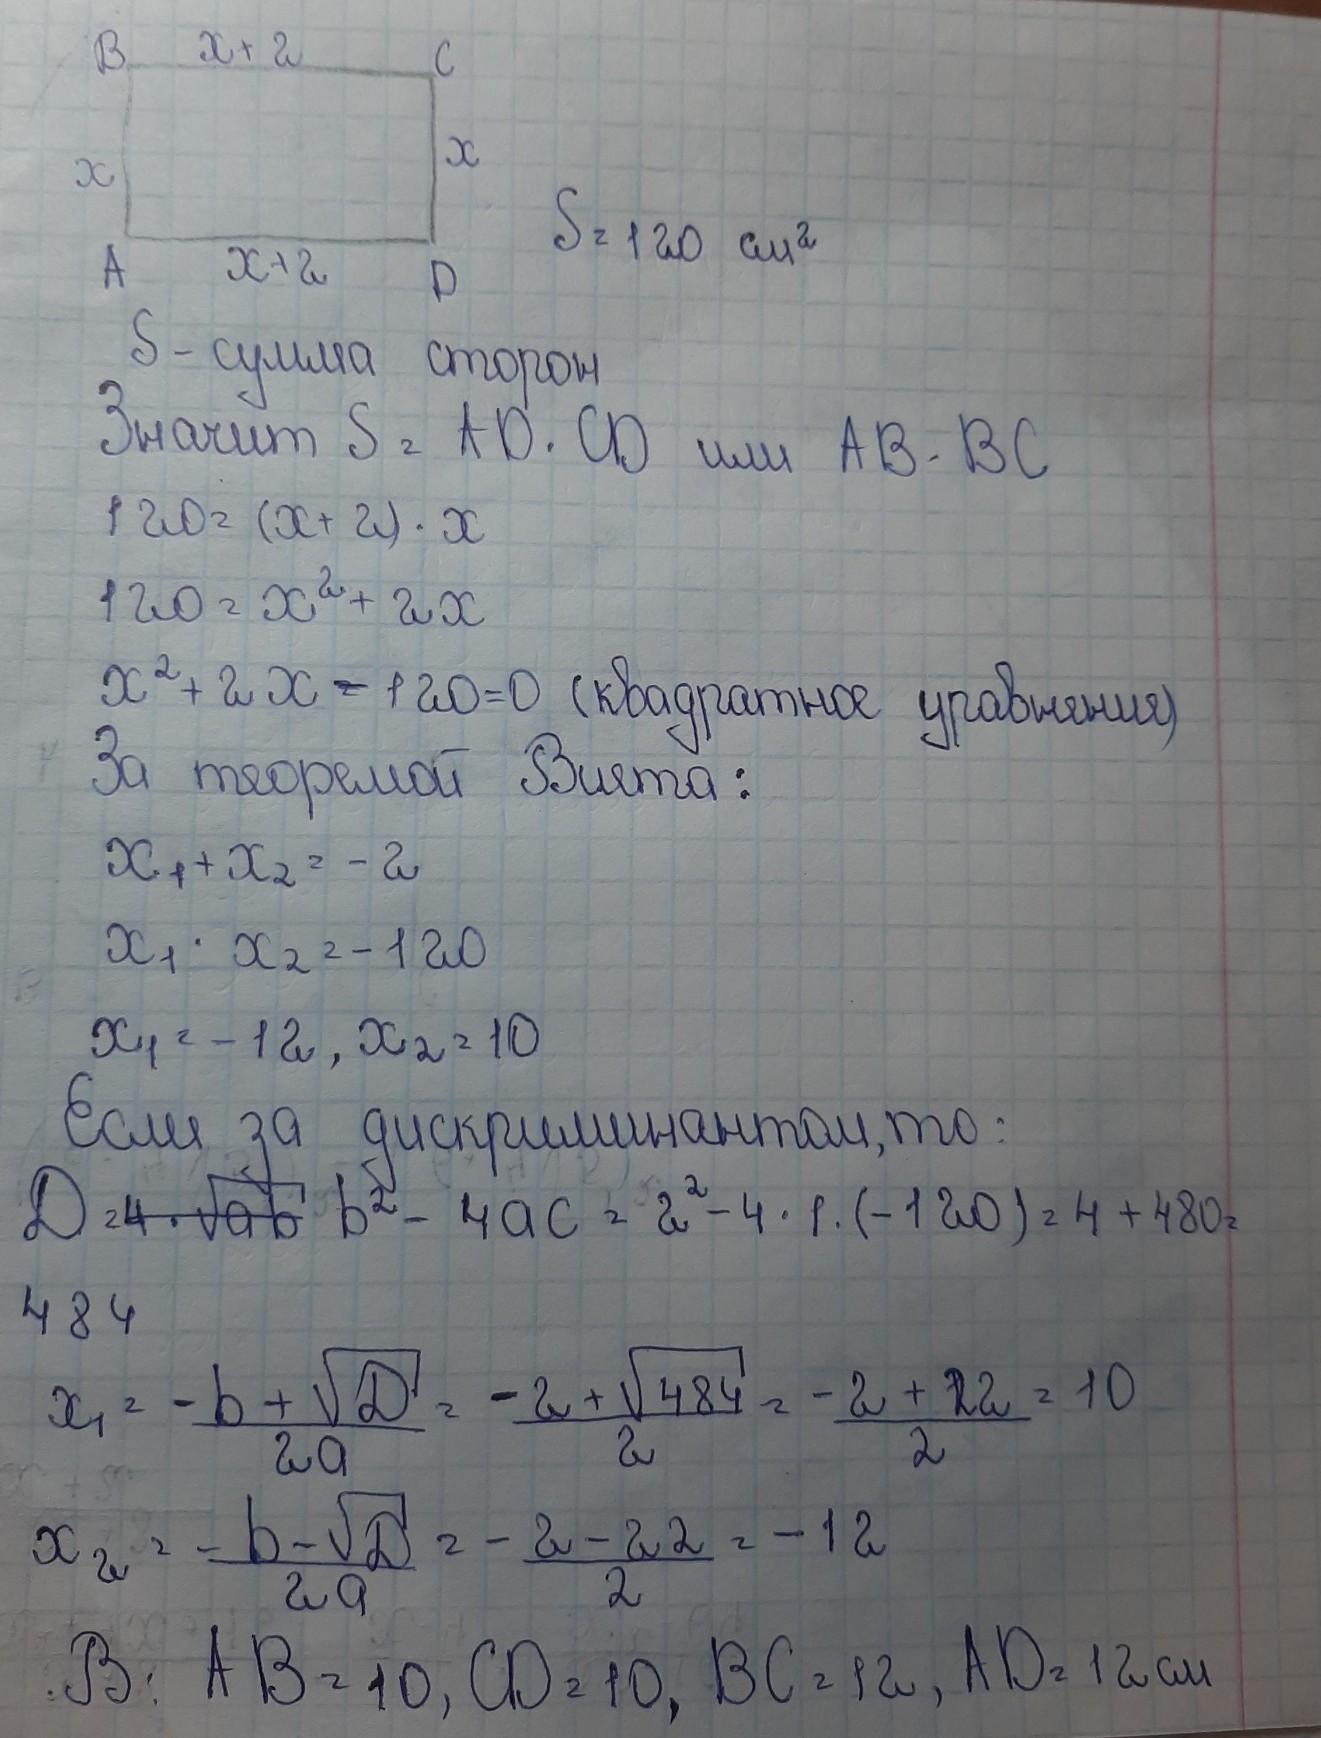 B x+2 C
x x
S=120 см²
A x+2 D
S - сумма сторон
Значит S = AD · CD или AB · BC
120 = (x+2) · x
120 = x² + 2x
x² + 2x - 120=0 (квадратное уравнения)
За теоремой Виета:
x₁ + x₂ = -2
x₁ · x₂ = -120
x₁ = -12, x₂ = 10
Если за дискриминантом, то:
D = 4 · √ab b² - 4ac = 2² - 4 · 1 · (-120) = 4 + 480 =
484
x₁ = (-b + √D)/2a = (-2 + √484)/2 = (-2 + 22)/2 = 10
x₂ = (-b - √D)/2a = (-2 - 22)/2 = -12
В: AB = 10, CD = 10, BC = 12, AD = 12 см